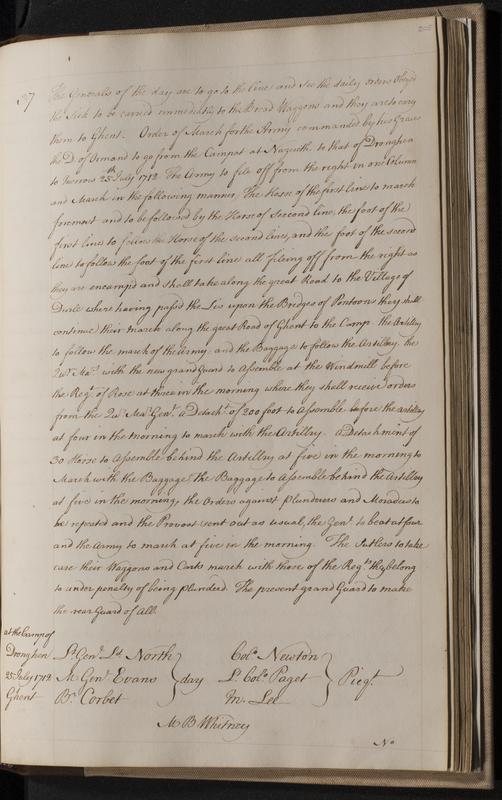 37
The Generalls of the day are to go to the lines and see the daily orders Obey'd
the Sick to be carried immediatly to the Bread Waggons and they are to cary
them to Ghent. Order of March for the Army commanded by his Grace
the D. of Ormond to go from the Camp at Nazreth to that of Dronghen
to Morrow 25th July 1712 The Army to file off from the right in one Column
and March in the following manner, The Horse of the first line to march
foremost and to be followed by the Horse of Second line, the foot of the
first line to follow the Horse of the second line, and the foot of the second
line to follow the foot of the first line all fileing off from the right as
they are encamp'd and shall take along the great Road to the Village of
Durle where having pass'd the Lis upon the Bridges of Pontoons they shall
continue their march along the great Road of Ghent to the Camp. the Artillery
to follow the march of the Army. and the Baggage to follow the Artillery. the
Qur. Mars. with the new grand Guard to Assemble at the Windmill before
the Regt. of Rose at three in the morning where they shall receive orders
from the Qur. Mar. Genl. a Detacht. of 200 foot to Assemble before the artillery
at four in the morning to march with the Artillery. a Detachment of
30 Horse to Assemble behind the Artillery at five in the morning to
March with the Baggage the Baggage to Assemble behind the Artillery
at five in the morning, the Orders against plunderers and Moradeus to
be repeated and the Provost sent out as usual, the Genl. to beat at four
and the Army to march at five in the morning. The Sutlers to take
care their Waggons and Carts march with those of the Regts. they belong
to under penalty of being plunderd. The present grand Guard to make
the rear Guard of All.
at the Camp of
Dronghen
25 July 1712
Ghent
Lt. Genl. Ld. North
M Genl. Evans
Br. Corbet
day
Col. Newton
Lt. Col. Paget
M. Lee
Picqt.
M B Whitney
No